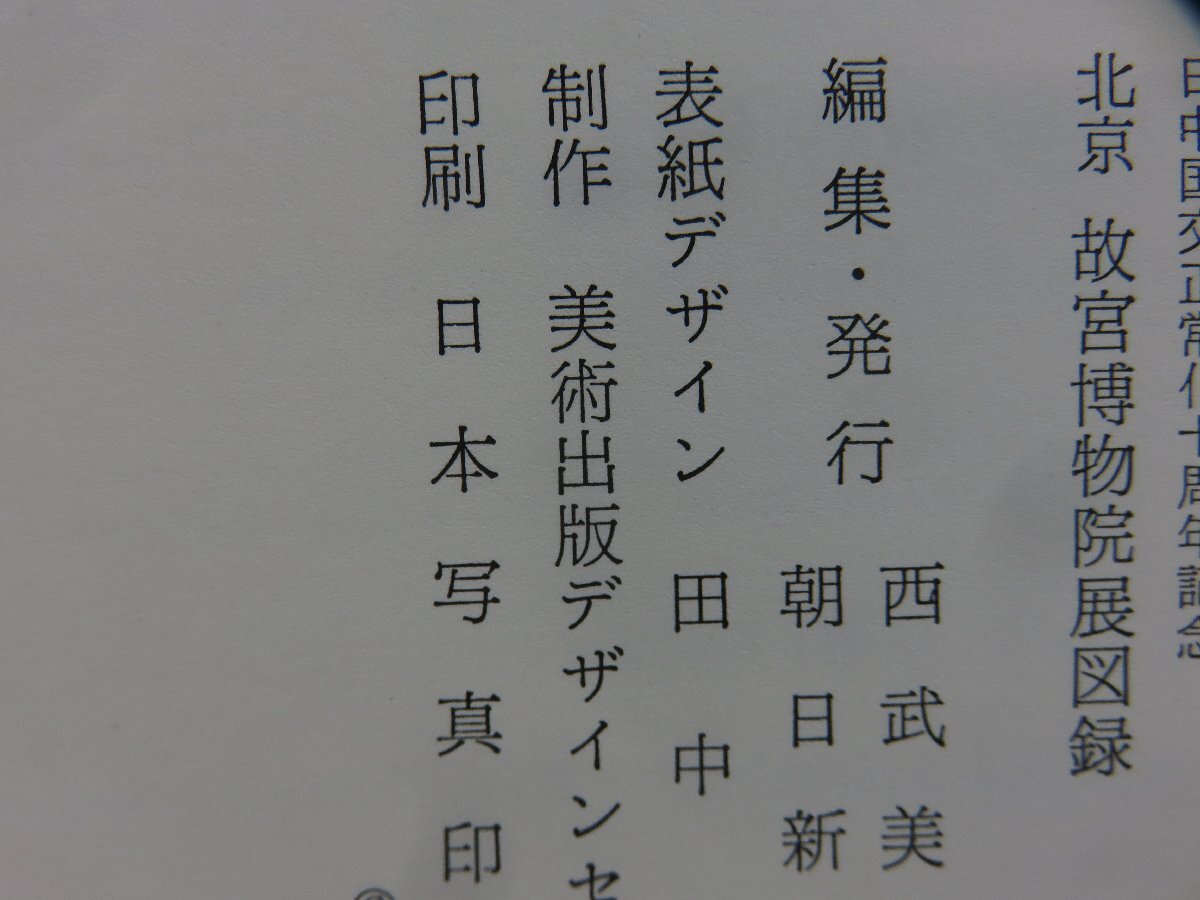 日中国交正常化十周年記念
北京 故宮博物院展図録
編集・発行 西武美
朝日新
表紙デザイン 田中
制作 美術出版デザインセ
印刷 日本写真印